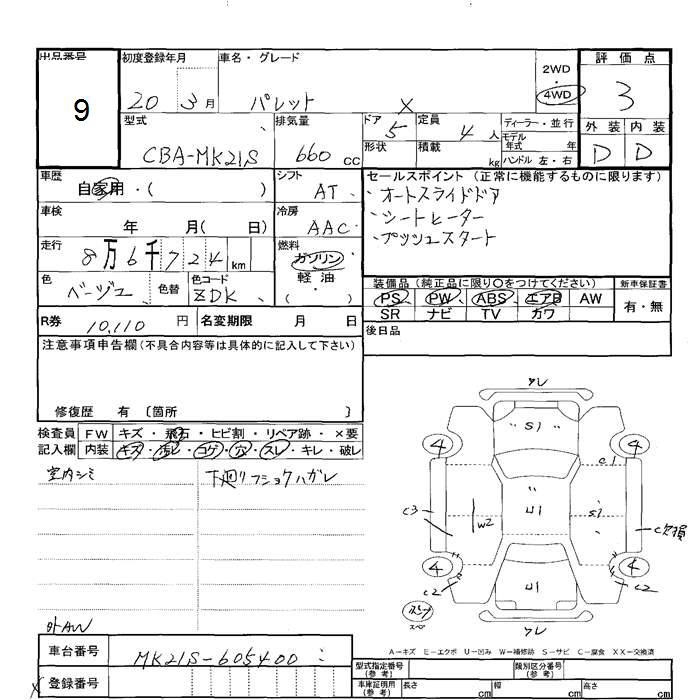 出品番号 初度登録年月 車名・グレード 2WD ・ 4WD 評価点
9 20 3月 パレット X 3
型式 排気量 ドア 5 定員 4人 ディーラー・並行 外装 内装
CBA-MK21S 660 cc 形状 積載 kg モデル年式 年 D D
ハンドル 左・右
車歴 自家用・( ) シフト AT セールスポイント (正常に機能するものに限ります)
・オートスライドドア
車検 年 月( 日) 冷房 AAC ・シートヒーター
走行 8万6千724 km 燃料 ガソリン ・プッシュスタート
軽油
・( )
色 ベージュ 色替 色コード ZDK 装備品 (純正品に限り○をつけてください) 新車保証書
PS PW ABS エアB AW 有・無
R券 10,110 円 名変期限 月 日 SR ナビ TV カワ
後日品
注意事項申告欄 (不具合内容等は具体的に記入して下さい)
修復歴 有 〔箇所 〕
検査員 FW キズ・飛石・ヒビ割・リペア跡・×要
記入欄 内装 キズ・汚レ・コゲ・穴・スレ・キレ・破レ
室内シミ 下廻りフショクハガレ
ワレ
S1
4 4
C1
C3 W2 U1 S1 C欠損
4 4
C2 U1 C2
スペア
ワレ
外AW
A=キズ E=エクボ U=凹み W=補修跡 S=サビ C=腐食 XX=交換済
車台番号 MK21S-605400
型式指定番号 (参考) 類別区分番号 (参考)
X 登録番号
車庫証明用 (参考) 長さ cm 幅 cm 高さ cm